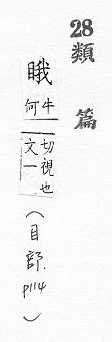 28
類篇
睋
牛
何
切視也
文一
(目部.p114)